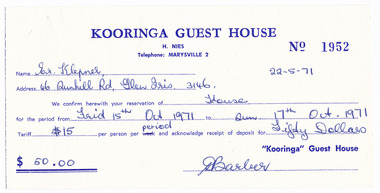 KOORINGA GUEST HOUSE
H. NIES
Telephone: MARYSVILLE 2
No 1952
22-5-71
Name Er. Klepner,
Address 66 Dunhill Rd, Glen Iris. 3146.
We confirm herewith your reservation of House
for the period from Frid 15th Oct. 1971 to Sun. 17th Oct. 1971
period
Tariff $15 per person per week and acknowledge receipt of deposit for Fifty Dollars
"Kooringa" Guest House
$ 50.00